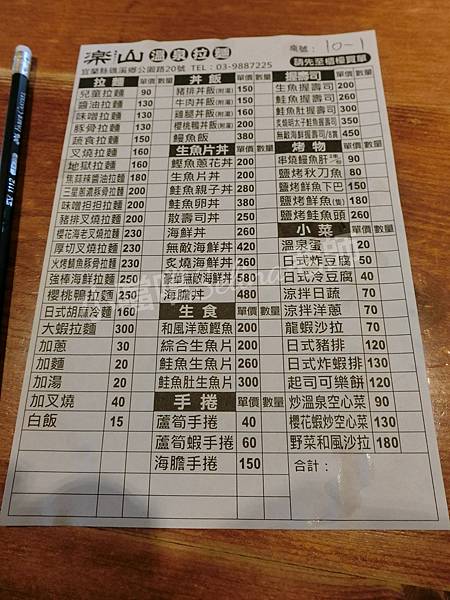 楽山 溫泉拉麵 桌號：10-1
宜蘭縣礁溪鄉公園路20號 TEL：03-9887225 請先至櫃檯買單
拉麵 單價 數量
兒童拉麵 90
醬油拉麵 130
味噌拉麵 130
豚骨拉麵 130
蔬食拉麵 150
叉燒拉麵 160
地獄拉麵 160
焦蒜辣醬油拉麵 180
三星蔥濃豚骨拉麵 200
味噌担担拉麵 200
豬排叉燒拉麵 200
櫻花海老叉燒拉麵 220
厚切叉燒拉麵 230
火烤鯖魚豚骨拉麵 230
強棒海鮮拉麵 250
櫻桃鴨拉麵 250
日式胡麻冷麵 160
大蝦拉麵 300
加蔥 30
加麵 20
加湯 20
加叉燒 40
白飯 15
丼飯 單價 數量
豬排丼飯(附湯) 150
牛肉丼飯(附湯) 150
雞腿丼飯(附湯) 160
櫻桃鴨丼飯(附湯) 200
鰻魚飯 380
生魚片丼 單價 數量
鰹魚蔥花丼 200
生魚片丼 200
鮭魚親子丼 280
鮭魚卵丼 380
散壽司丼 250
海鮮丼 260
無敵海鮮丼 420
炙燒海鮮丼 280
豪華無敵海鮮丼 580
海膽丼 480
生食 單價 數量
和風洋蔥鰹魚 200
綜合生魚片 200
鮭魚生魚片 260
鮭魚肚生魚片 300
手捲 單價 數量
蘆筍手捲 40
蘆筍蝦手捲 60
海膽手捲 150
握壽司 單價 數量
生魚握壽司 200
鮭魚握壽司 260
鮭魚肚握壽司 300
炙燒明太子鮭魚握壽司 350
無敵海鮮握壽司/8貫 450
烤物 單價 數量
串燒鰻魚肝 90
鹽烤秋刀魚 80
鹽烤鮭魚下巴 150
鹽烤鮮魚(隻) 180
鹽烤鮭魚頭 260
小菜 單價 數量
溫泉蛋 20
日式炸豆腐 50
日式冷豆腐 40
涼拌日蔬 70
涼拌洋蔥 70
龍蝦沙拉 70
日式豬排 120
日式炸蝦排 130
起司可樂餅 120
炒溫泉空心菜 90
櫻花蝦炒空心菜 130
野菜和風沙拉 180
合計：